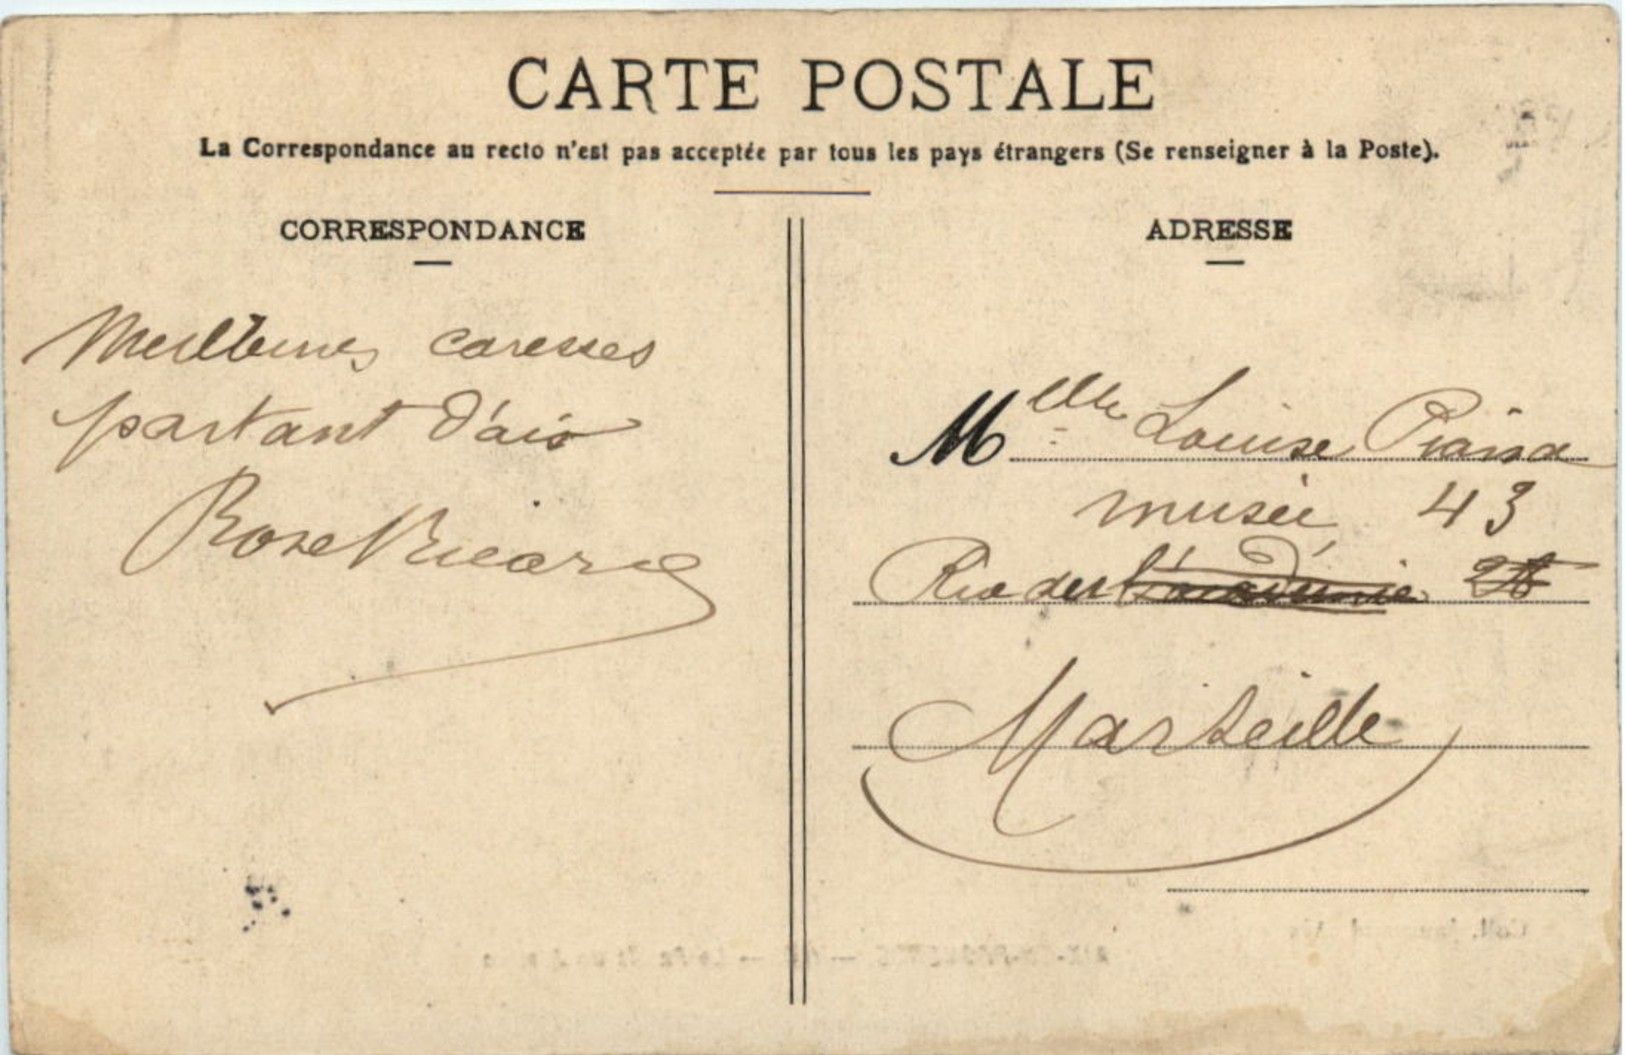 CARTE POSTALE
La Correspondance au recto n'est pas acceptée par tous les pays étrangers (Se renseigner à la Poste).
CORRESPONDANCE
ADRESSE
Meilleures caresses
partant d'aix
Rose Ricard
Melle Louise
musée 43
Marseille